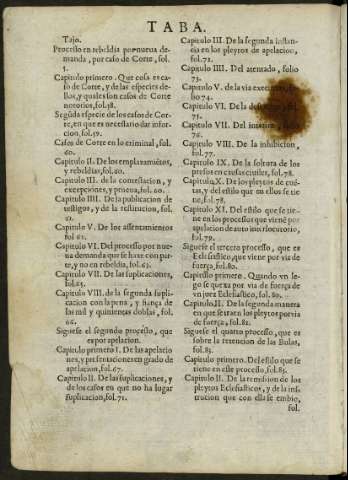 TABA.
Tajo.
Processo en rebeldia por nueva de-
manda, por caso de Corte, fol.
5.
Capitulo primero. Que cosa es ca-
so de Corte, y de las especies de-
llos, y quales son casos de Corte
notorios, fol.58.
Segũda especie de los casos de Cor-
te, en que es necessario dar infor-
cion, fol.59.
Casos de Corte en lo criminal, fol.
60.
Capitulo II. De los emplazamiẽtos,
y rebeldias, fol.60.
Capitulo III. de la contestacion, y
excepciones, y prueua, fol.60.
Capitulo IIII. De la publicacion de
testigos, y de la restitucion, fol.
61.
Capitulo V. De los assentamientos
fol.61.
Capitulo VI. Del processo por nue-
ua demanda que se haze con par-
te, y no en rebeldia, fol.63.
Capitulo VII. De las suplicaciones,
fol.65.
Capitulo VIII. de la segunda supli-
cacion con la pena, y fiança de
las mil y quinientas doblas, fol.
66.
Siguese el segundo processo, que
es por apelacion.
Capitulo primero I. De las apelacio
nes, y presentaciones en grado de
apelacion, fol.67.
Capitulo II. De las suplicaciones, y
de los casos en que no ha lugar
suplicacion, fol.71.
Capitulo III. De la segunda instan-
cia en los pleytos de apelacion,
fol.72.
Capitulo IIII. Del atentado, folio
73.
Capitulo V. de la via executiua, fo-
lio 74.
Capitulo VI. De la fol.
75.
Capitulo VII. Del folio
76.
Capitulo VIII. De la inhibicion,
fol.77.
Capitulo IX. De la soltura de los
presos en causas ciuiles, fol.78.
Capitulo X. De los pleytos de cuẽ-
tas, y del estilo que en ellos se tie
ne, fol.78.
Capitulo XI. Del estilo que se tie-
ne en los processos que vienẽ por
apelacion de auto interlocutorio,
fol.79.
Siguese el tercero processo, que es
Eclesiastico, que viene por via de
fuerça, fol.80.
Capitulo primero. Quando vn le-
go se quexa por via de fuerça de
vn juez Eclesiastico, fol.80.
Capitulo II. De la segunda manera
en que se tratan los pleytos por via
de fuerça, fol.82.
Siguese el quarto processo, que es
sobre la retencion de las Bulas,
fol.83.
Capitulo primero. Del estilo que se
tiene en este processo, fol.83.
Capitulo II. De la remission de los
pleytos Eclesiasticos, y de la ins-
trucion que con ella se embio,
fol.